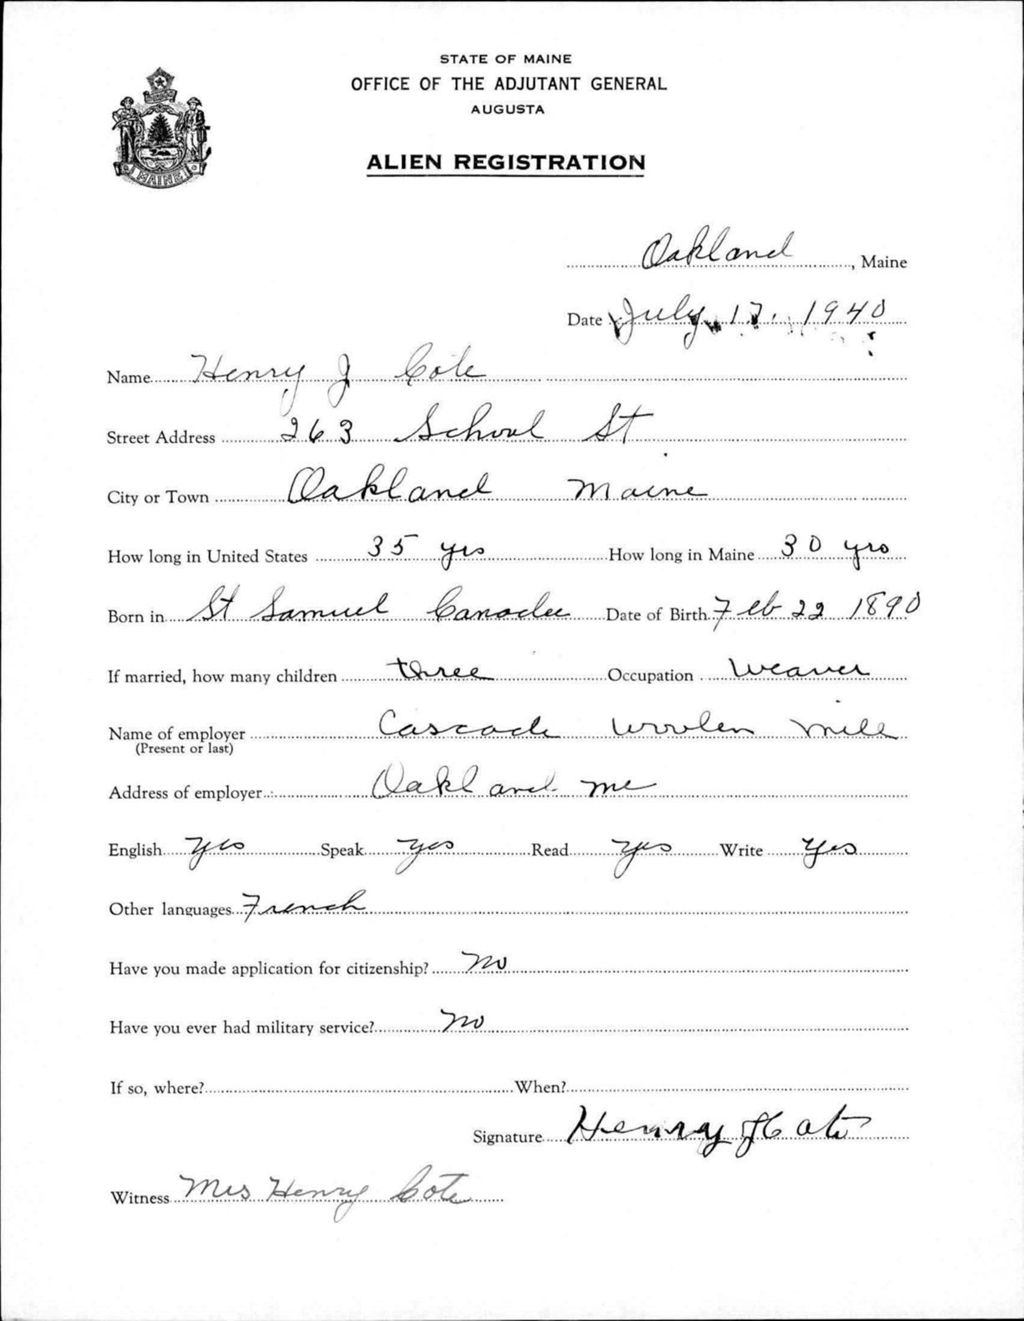 STATE OF MAINE
OFFICE OF THE ADJUTANT GENERAL
AUGUSTA
ALIEN REGISTRATION
MAINE
Oakland, Maine
Date July 17. 1940
Name Henry J Cote
Street Address 263 School St
City or Town Oakland Maine
How long in United States 35 yrs How long in Maine 30 yrs
Born in St Samuel Canada Date of Birth Feb 22 1890
If married, how many children three Occupation Weaver
Name of employer Cascade Woolen Mill
(Present or last)
Address of employer Oakland Me
English yes Speak yes Read yes Write yes
Other languages French
Have you made application for citizenship? No
Have you ever had military service? No
If so, where? When?
Signature Henry J Cote
Witness Mrs Henry Cote